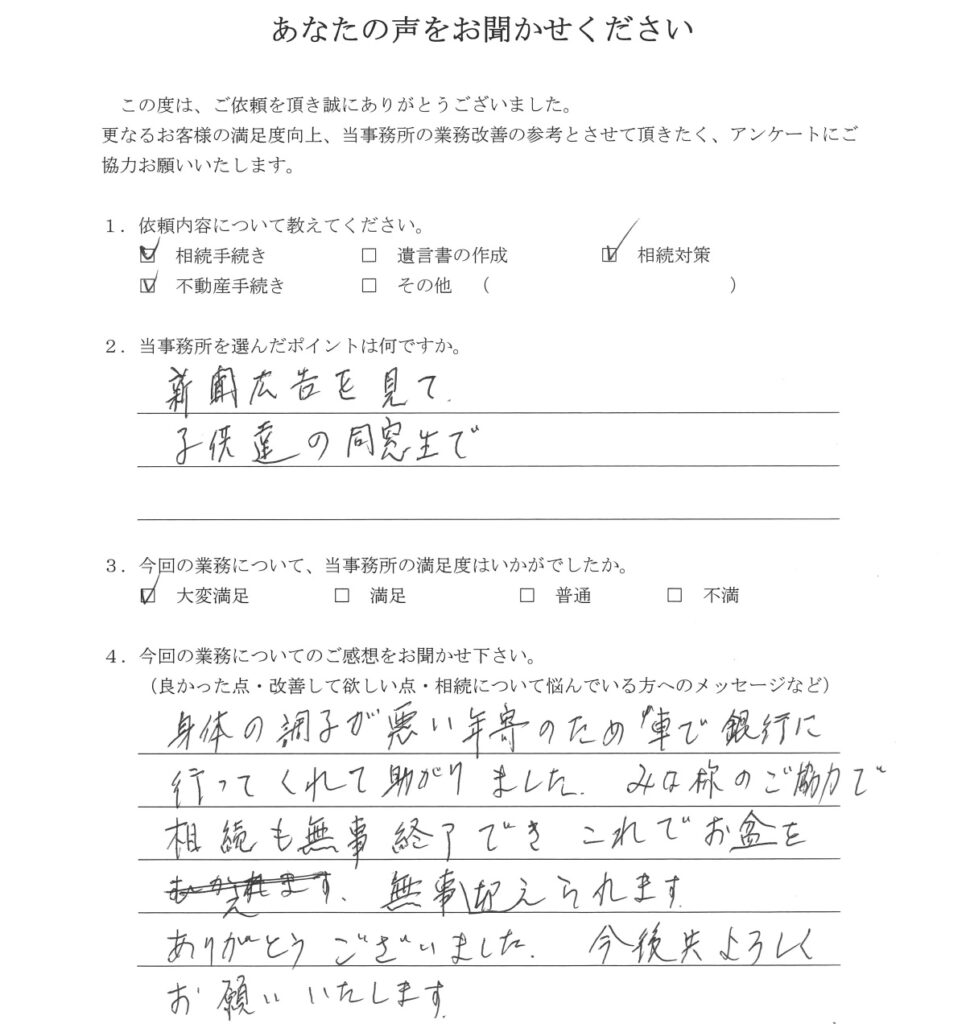 あなたの声をお聞かせください
この度は、ご依頼を頂き誠にありがとうございました。
更なるお客様の満足度向上、当事務所の業務改善の参考とさせて頂きたく、アンケートにご
協力お願いいたします。
１．依頼内容について教えてください。
☑ 相続手続き □ 遺言書の作成 ☑ 相続対策
☑ 不動産手続き □ その他 （ ）
２．当事務所を選んだポイントは何ですか。
新聞広告を見て.
子供達の同窓生で
３．今回の業務について、当事務所の満足度はいかがでしたか。
☑ 大変満足 □ 満足 □ 普通 □ 不満
４．今回の業務についてのご感想をお聞かせ下さい。
（良かった点・改善して欲しい点・相続について悩んでいる方へのメッセージなど）
身体の調子が悪い年寄のため車で銀行に
行ってくれて助がりました. みな様のご協力で
相続も無事終了でき これでお盆を
むかえれます. 無事迎えられます.
ありがとうございました. 今後共よろしく
お願いいたします.